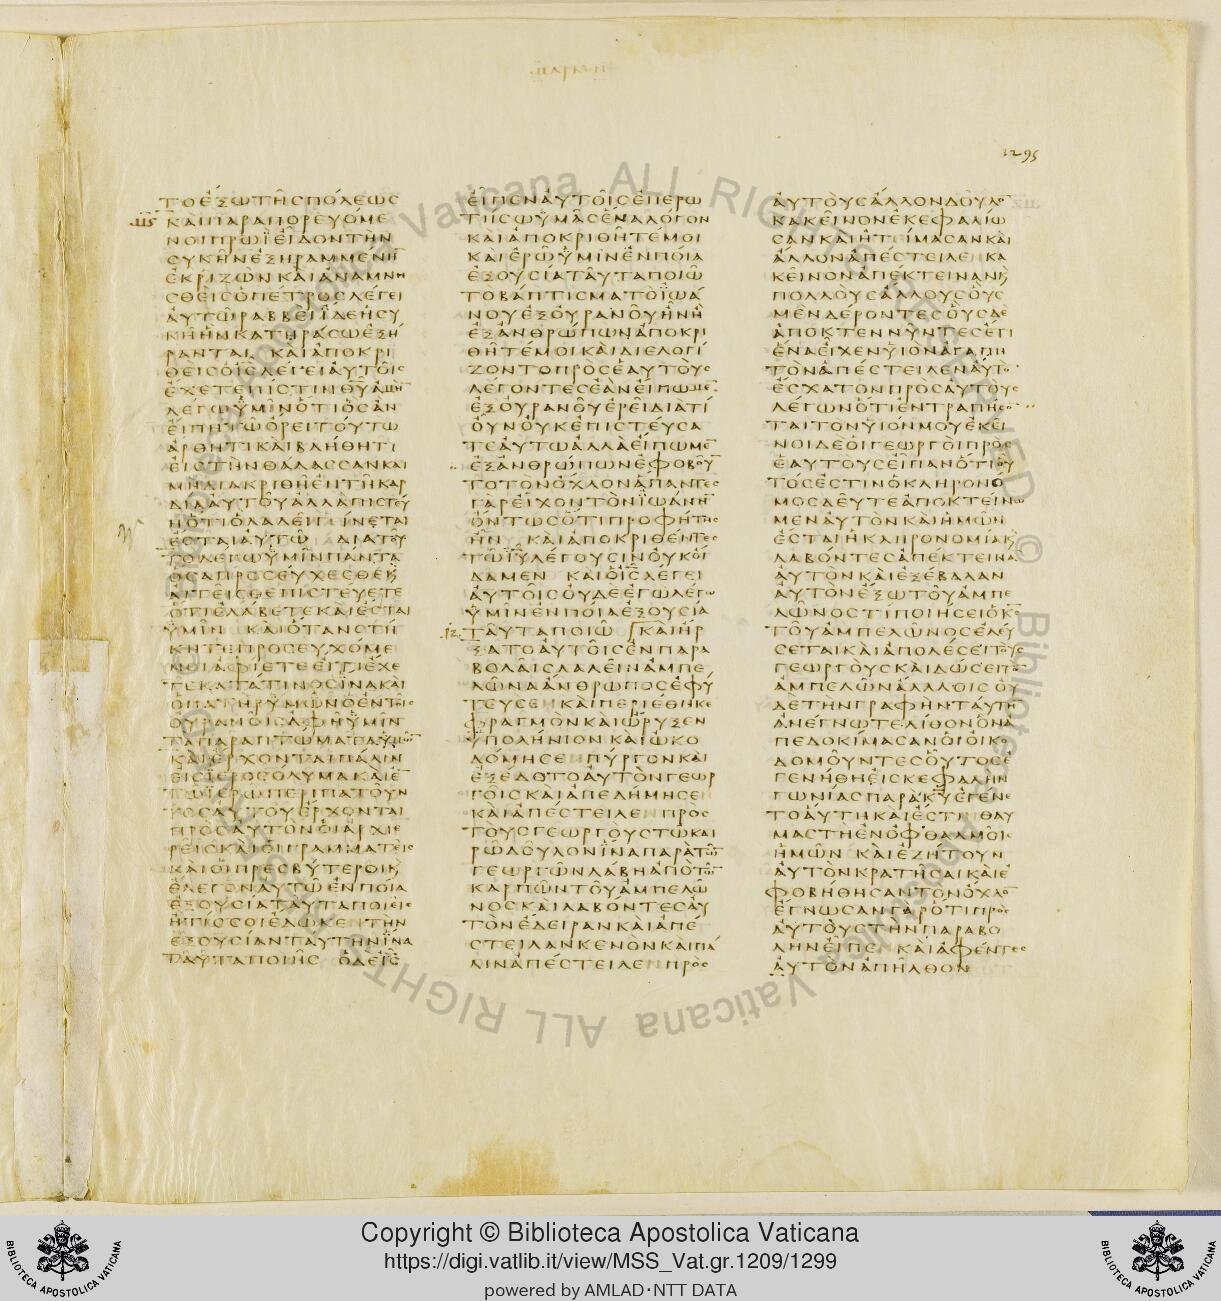 1295
ΤΟΕΞΩΤΗΣΠΟΛΕΩΣ
ΚΑΙΠΑΡΑΠΟΡΕΥΟΜΕ
ΝΟΙΠΡΩΙΕΙΔΟΝΤΗΝ
ΣΥΚΗΝΕΞΗΡΑΜΜΕΝΗ
ΕΚΡΙΖΩΝΚΑΙΑΝΑΜΝΗ
ΣΘΕΙΣΟΠΕΤΡΟΣΛΕΓΕΙ
ΑΥΤΩΡΑΒΒΕΙΙΔΕΗΣΥ
ΚΗΗΝΚΑΤΗΡΑΣΩΕΞΗ
ΡΑΝΤΑΙ ΚΑΙΑΠΟΚΡΙ
ΘΕΙΣΟΙΣΛΕΓΕΙΑΥΤΟΙΣ
ΕΧΕΤΕΠΙΣΤΙΝΘΥΑΜΗΝ
ΛΕΓΩΥΜΙΝΟΤΙΟΣΑΝ
ΕΙΠΗΤΩΟΡΕΙΤΟΥΤΩ
ΑΡΘΗΤΙΚΑΙΒΛΗΘΗΤΙ
ΕΙΣΤΗΝΘΑΛΑΣΣΑΝΚΑΙ
ΜΗΔΙΑΚΡΙΘΗΕΝΤΗΚΑΡ
ΔΙΑΑΥΤΟΥΑΛΛΑΠΙΣΤΕΥ
ΗΟΤΙΟΛΑΛΕΙΓΙΝΕΤΑΙ
ΕΣΤΑΙΑΥΤΩ ΔΙΑΤΟΥ
ΤΟΛΕΓΩΥΜΙΝΠΑΝΤΑ
ΟΣΑΠΡΟΣΕΥΧΕΣΘΕΚΑΙ
ΑΙΤΕΙΣΘΕΠΙΣΤΕΥΕΤΕ
ΟΤΙΕΛΑΒΕΤΕΚΑΙΕΣΤΑΙ
ΥΜΙΝ ΚΑΙΟΤΑΝΣΤΗ
ΚΗΤΕΠΡΟΣΕΥΧΟΜΕ
ΝΟΙΑΦΙΕΤΕΕΙΤΙΕΧΕ
ΤΕΚΑΤΑΤΙΝΟΣΙΝΑΚΑΙ
ΟΠΑΤΗΡΥΜΩΝΟΕΝΤΟΙΣ
ΟΥΡΑΝΟΙΣΑΦΗΥΜΙΝ
ΤΑΠΑΡΑΠΤΩΜΑΤΑΥΜΩΝ
ΚΑΙΕΡΧΟΝΤΑΙΠΑΛΙΝ
ΕΙΣΙΕΡΟΣΟΛΥΜΑΚΑΙΕΝ
ΤΩΙΕΡΩΠΕΡΙΠΑΤΟΥΝ
ΤΟΣΑΥΤΟΥΕΡΧΟΝΤΑΙ
ΠΡΟΣΑΥΤΟΝΟΙΑΡΧΙΕ
ΡΕΙΣΚΑΙΟΙΓΡΑΜΜΑΤΕΙΣ
ΚΑΙΟΙΠΡΕΣΒΥΤΕΡΟΙΚΑΙ
ΕΛΕΓΟΝΑΥΤΩΕΝΠΟΙΑ
ΕΞΟΥΣΙΑΤΑΥΤΑΠΟΙΕΙΣ
ΗΤΙΣΣΟΙΕΔΩΚΕΝΤΗΝ
ΕΞΟΥΣΙΑΝΤΑΥΤΗΝΙΝΑ
ΤΑΥΤΑΠΟΙΗΣ ΟΔΕΙΣ
ΕΙΠΕΝΑΥΤΟΙΣΕΠΕΡΩ
ΤΗΣΩΥΜΑΣΕΝΑΛΟΓΟΝ
ΚΑΙΑΠΟΚΡΙΘΗΤΕΜΟΙ
ΚΑΙΕΡΩΥΜΙΝΕΝΠΟΙΑ
ΕΞΟΥΣΙΑΤΑΥΤΑΠΟΙΩ
ΤΟΒΑΠΤΙΣΜΑΤΟΙΩΑ
ΝΟΥΕΞΟΥΡΑΝΟΥΗΝΗ
ΕΞΑΝΘΡΩΠΩΝΑΠΟΚΡΙ
ΘΗΤΕΜΟΙΚΑΙΔΙΕΛΟΓΙ
ΖΟΝΤΟΠΡΟΣΕΑΥΤΟΥΣ
ΛΕΓΟΝΤΕΣΕΑΝΕΙΠΩΜΕΝ
ΕΞΟΥΡΑΝΟΥΕΡΕΙΔΙΑΤΙ
ΟΥΝΟΥΚΕΠΙΣΤΕΥΣΑ
ΤΕΑΥΤΩΑΛΛΑΕΙΠΩΜΕΝ
ΕΞΑΝΘΡΩΠΩΝΕΦΟΒΟΥΝ
ΤΟΤΟΝΟΧΛΟΝΑΠΑΝΤΕΣ
ΓΑΡΕΙΧΟΝΤΟΝΙΩΑΝΗΝ
ΟΝΤΩΣΟΤΙΠΡΟΦΗΤΗΣ
ΗΝ ΚΑΙΑΠΟΚΡΙΘΕΝΤΕΣ
ΤΩΙΥΛΕΓΟΥΣΙΝΟΥΚΟΙ
ΔΑΜΕΝ ΚΑΙΟΙΣΛΕΓΕΙ
ΑΥΤΟΙΣΟΥΔΕΕΓΩΛΕΓΩ
ΥΜΙΝΕΝΠΟΙΑΕΞΟΥΣΙΑ
ΤΑΥΤΑΠΟΙΩ ΚΑΙΗΡ
ΞΑΤΟΑΥΤΟΙΣΕΝΠΑΡΑ
ΒΟΛΑΙΣΛΑΛΕΙΝΑΜΠΕ
ΛΩΝΑΑΝΘΡΩΠΟΣΕΦΥ
ΤΕΥΣΕΝΚΑΙΠΕΡΙΕΘΗΚΕ
ΦΡΑΓΜΟΝΚΑΙΩΡΥΞΕΝ
ΥΠΟΛΗΝΙΟΝΚΑΙΩΚΟ
ΔΟΜΗΣΕΝΠΥΡΓΟΝΚΑΙ
ΕΞΕΔΟΤΟΑΥΤΟΝΓΕΩΡ
ΓΟΙΣΚΑΙΑΠΕΔΗΜΗΣΕΝ
ΚΑΙΑΠΕΣΤΕΙΛΕΝΠΡΟΣ
ΤΟΥΣΓΕΩΡΓΟΥΣΤΩΚΑΙ
ΡΩΔΟΥΛΟΝΙΝΑΠΑΡΑΤΩΝ
ΓΕΩΡΓΩΝΛΑΒΗΑΠΟΤΩΝ
ΚΑΡΠΩΝΤΟΥΑΜΠΕΛΩ
ΝΟΣΚΑΙΛΑΒΟΝΤΕΣΑΥ
ΤΟΝΕΔΕΙΡΑΝΚΑΙΑΠΕ
ΣΤΕΙΛΑΝΚΕΝΟΝΚΑΙΠΑ
ΛΙΝΑΠΕΣΤΕΙΛΕΝΠΡΟΣ
ΑΥΤΟΥΣΑΛΛΟΝΔΟΥΛΟΝ
ΚΑΚΕΙΝΟΝΕΚΕΦΑΛΙΩ
ΣΑΝΚΑΙΗΤΙΜΑΣΑΝΚΑΙ
ΑΛΛΟΝΑΠΕΣΤΕΙΛΕΝΚΑ
ΚΕΙΝΟΝΑΠΕΚΤΕΙΝΑΝΚΑΙ
ΠΟΛΛΟΥΣΑΛΛΟΥΣΟΥΣ
ΜΕΝΔΕΡΟΝΤΕΣΟΥΣΔΕ
ΑΠΟΚΤΕΝΝΥΝΤΕΣΕΤΙ
ΕΝΑΕΙΧΕΝΥΙΟΝΑΓΑΠΗ
ΤΟΝΑΠΕΣΤΕΙΛΕΝΑΥΤΟΝ
ΕΣΧΑΤΟΝΠΡΟΣΑΥΤΟΥΣ
ΛΕΓΩΝΟΤΙΕΝΤΡΑΠΗΣΟΝ
ΤΑΙΤΟΝΥΙΟΝΜΟΥΕΚΕΙ
ΝΟΙΔΕΟΙΓΕΩΡΓΟΙΠΡΟΣ
ΕΑΥΤΟΥΣΕΙΠΑΝΟΤΙΟΥ
ΤΟΣΕΣΤΙΝΟΚΛΗΡΟΝΟ
ΜΟΣΔΕΥΤΕΑΠΟΚΤΕΙΝΩ
ΜΕΝΑΥΤΟΝΚΑΙΗΜΩΝ
ΕΣΤΑΙΗΚΛΗΡΟΝΟΜΙΑΚΑΙ
ΛΑΒΟΝΤΕΣΑΠΕΚΤΕΙΝΑ
ΑΥΤΟΝΚΑΙΕΞΕΒΑΛΑΝ
ΑΥΤΟΝΕΞΩΤΟΥΑΜΠΕ
ΛΩΝΟΣΤΙΠΟΙΗΣΕΙΟΚΣ
ΤΟΥΑΜΠΕΛΩΝΟΣΕΛΕΥ
ΣΕΤΑΙΚΑΙΑΠΟΛΕΣΕΙΤΟΥΣ
ΓΕΩΡΓΟΥΣΚΑΙΔΩΣΕΙΤΟΝ
ΑΜΠΕΛΩΝΑΑΛΛΟΙΣΟΥ
ΔΕΤΗΝΓΡΑΦΗΝΤΑΥΤΗ
ΑΝΕΓΝΩΤΕΛΙΘΟΝΟΝΑ
ΠΕΔΟΚΙΜΑΣΑΝΟΙΟΙΚΟ
ΔΟΜΟΥΝΤΕΣΟΥΤΟΣΕ
ΓΕΝΗΘΗΕΙΣΚΕΦΑΛΗΝ
ΓΩΝΙΑΣΠΑΡΑΚΥΕΓΕΝΕ
ΤΟΑΥΤΗΚΑΙΕΣΤΙΝΘΑΥ
ΜΑΣΤΗΕΝΟΦΘΑΛΜΟΙΣ
ΗΜΩΝ ΚΑΙΕΖΗΤΟΥΝ
ΑΥΤΟΝΚΡΑΤΗΣΑΙΚΑΙΕ
ΦΟΒΗΘΗΣΑΝΤΟΝΟΧΛΟΝ
ΕΓΝΩΣΑΝΓΑΡΟΤΙΠΡΟΣ
ΑΥΤΟΥΣΤΗΝΠΑΡΑΒΟ
ΛΗΝΕΙΠΕΝ ΚΑΙΑΦΕΝΤΕΣ
ΑΥΤΟΝΑΠΗΛΘΟΝ
Copyright © Biblioteca Apostolica Vaticana
https://digi.vatlib.it/view/MSS_Vat.gr.1209/1299
powered by AMLAD·NTT DATA
BIBLIOTECA APOSTOLICA VATICANA
BIBLIOTECA APOSTOLICA VATICANA